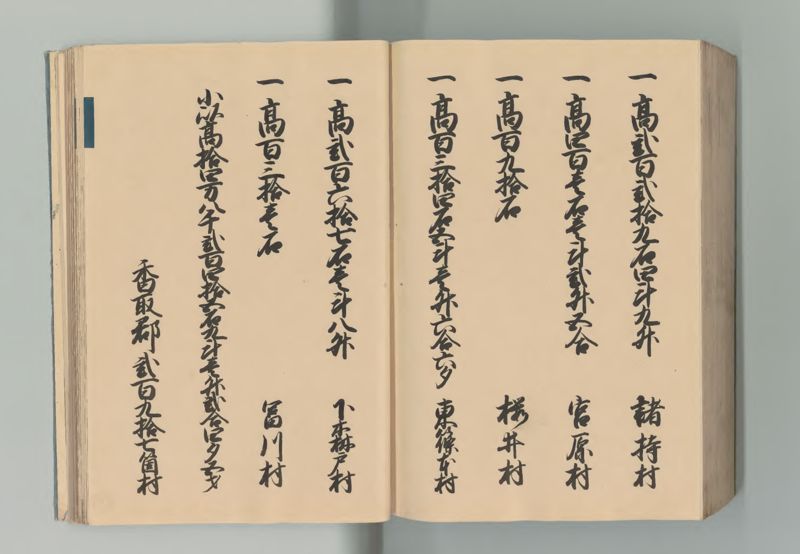 一 髙弐百弐拾九石四斗九升 諸持村
一 髙四百壱石壱斗弐升五合 宮原村
一 髙百九拾石 桜井村
一 髙百三拾四石五斗壱升六合六夕 東篠本村
一 髙弐百六拾七石壱斗八升 下森戸村
一 髙百三拾壱石 冨川村
小以髙拾四万八千弐百四拾五石九斗壱升弐合四夕五才
香取郡 弐百九拾七箇村